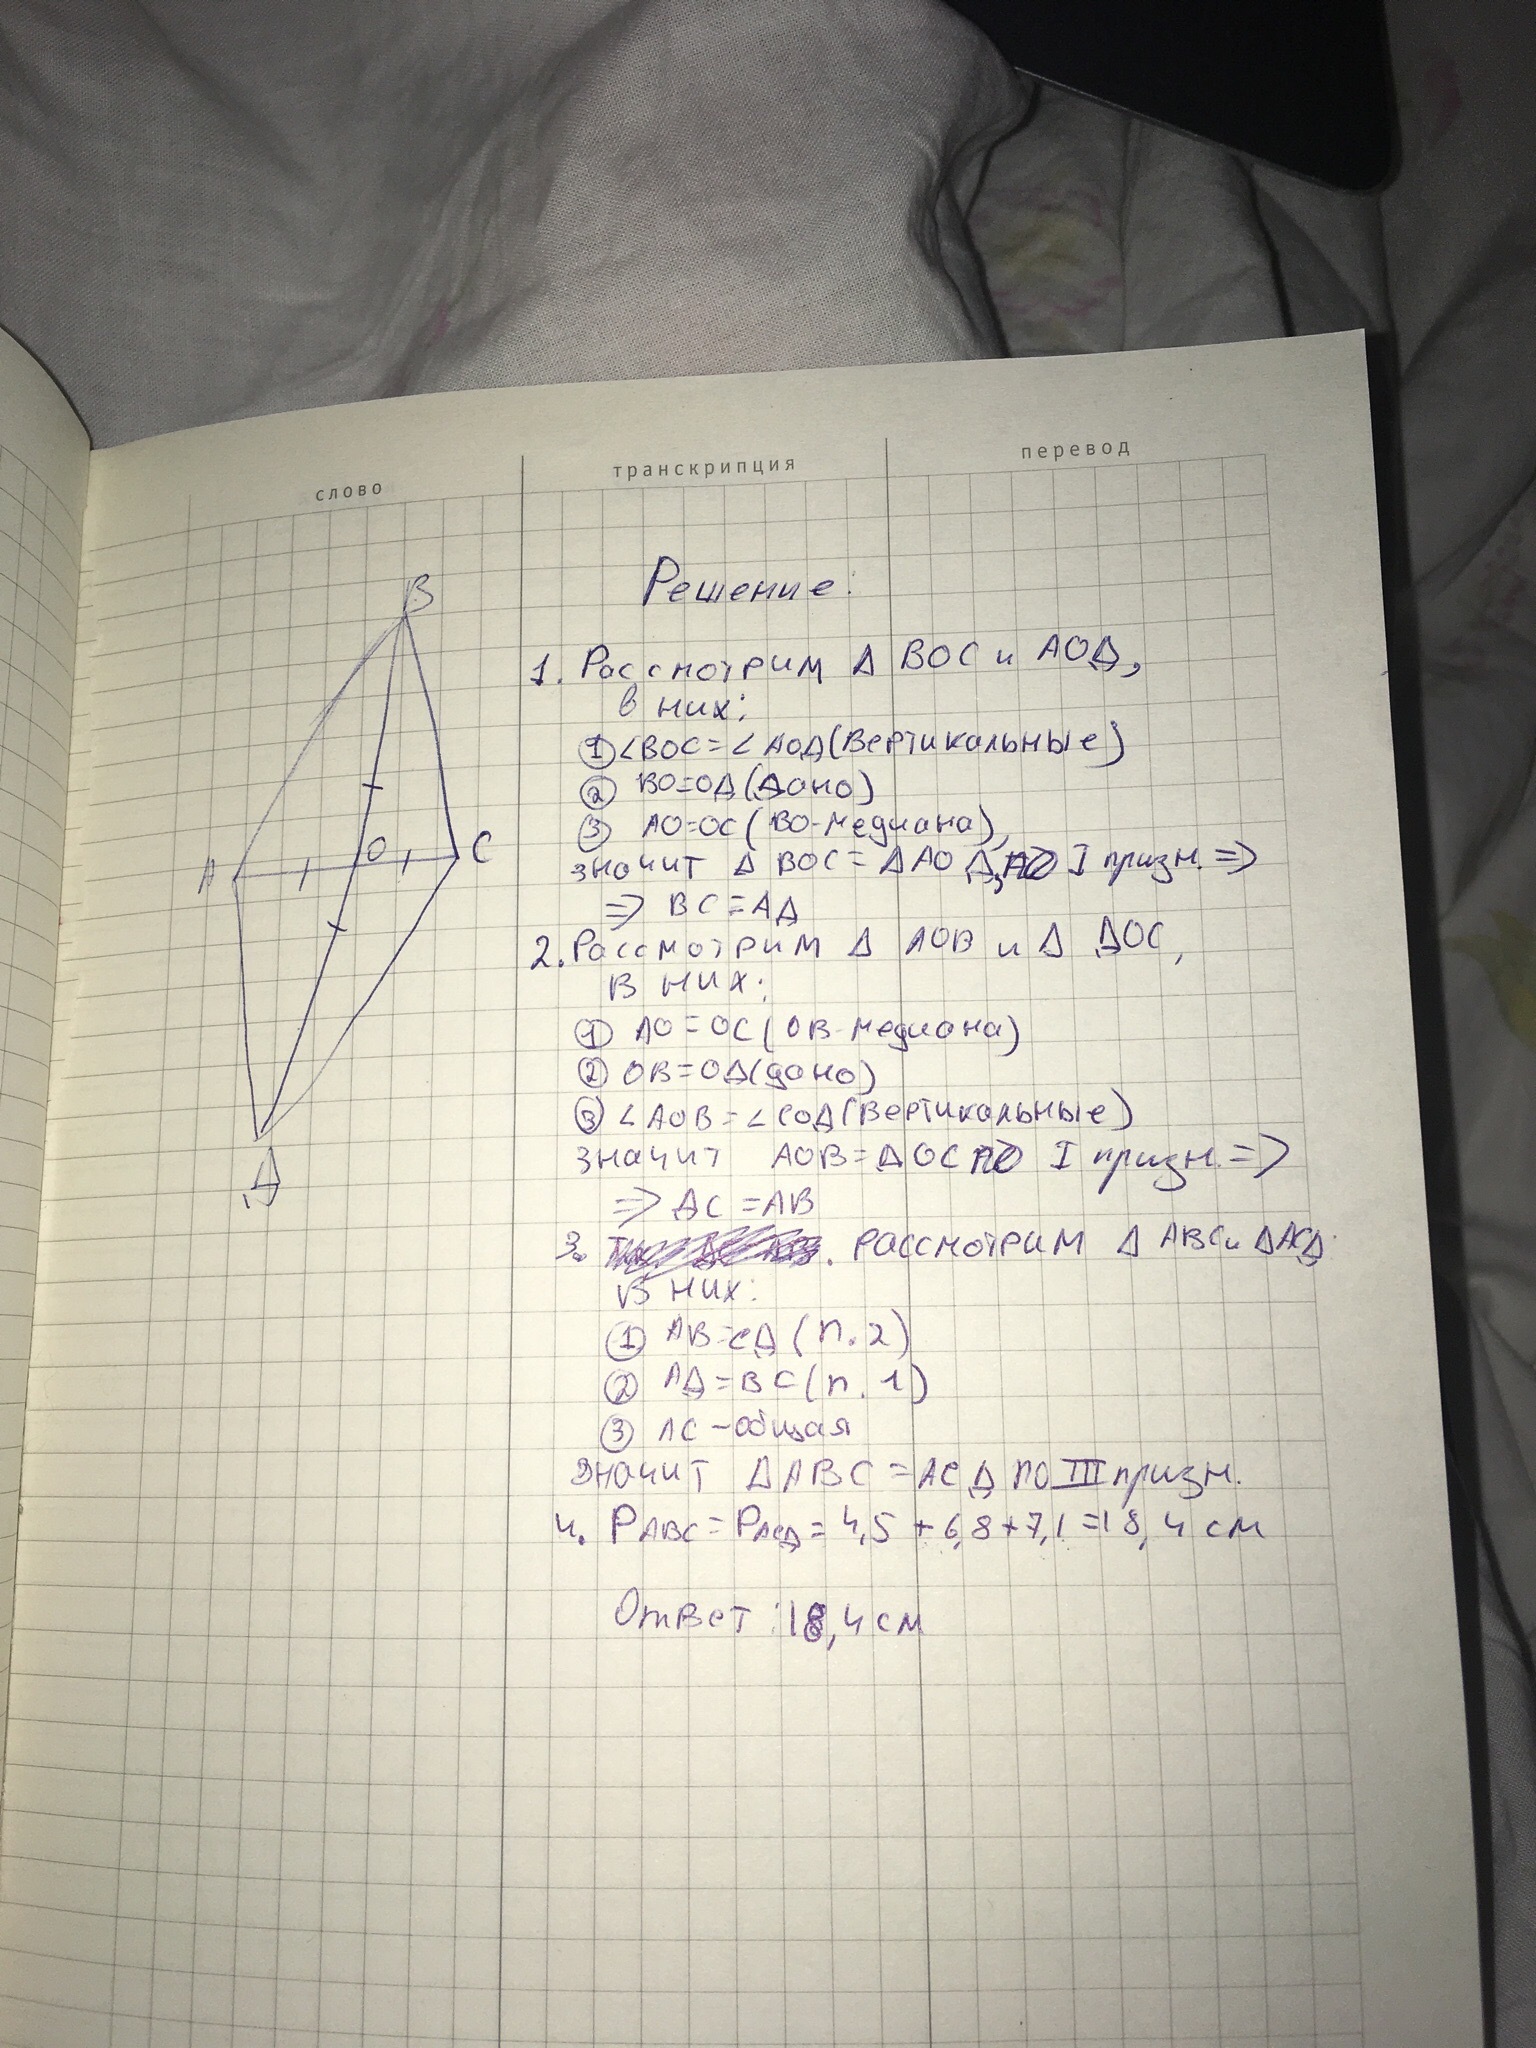 слово транскрипция перевод
B
A
O
C
Д
Решение:
1. Рассмотрим Δ BOC и AOД,
в них:
① ∠BOC = ∠AOД (Вертикальные)
② BO=OД (Дано)
③ AO=OC (BO-медиана),
значит Δ BOC = ΔAOД, по I призн. =>
=> BC = AД
2. Рассмотрим Δ AOB и Δ ДOC,
в них:
① AO = OC (OB-медиана)
② OB=OД (дано)
③ ∠AOB = ∠COД (Вертикальные)
значит AOB = ДOC по I призн. =>
=> ДC = AB
3. . Рассмотрим Δ ABC и ΔACД.
В них:
① AB=CД (п. 2)
② AД=BC (п. 1)
③ AC - общая
Значит ΔABC = ACД по III призн.
4. PABC = PACД = 4,5 + 6,8 + 7,1 = 18,4 см
Ответ: 18,4 см